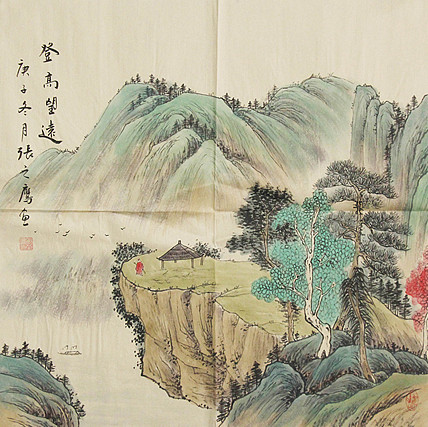 登高望远
庚子冬月张之鹰画